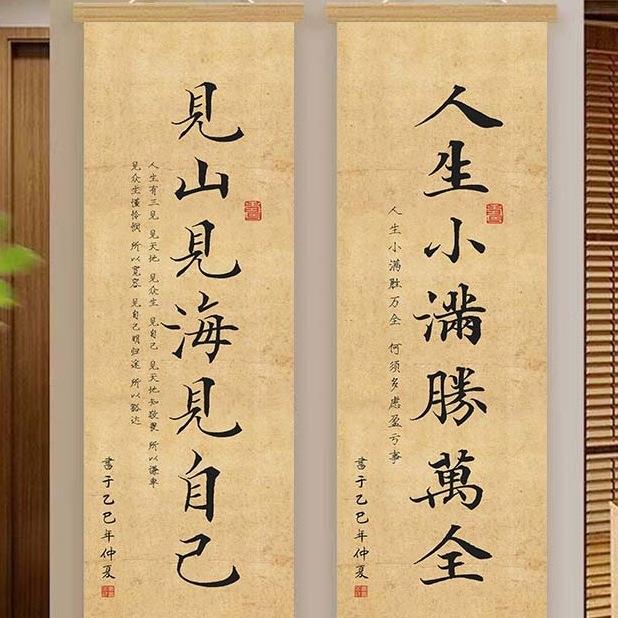 人生小滿勝萬全
人生小满胜万全 何须多虑盈亏事
書于乙巳年仲夏
見山見海見自己
人生有三见 见天地 见众生 见自己 见天地知敬畏 所以谦卑
见众生懂怜悯 所以宽容 见自己明归途 所以豁达
書于乙巳年仲夏